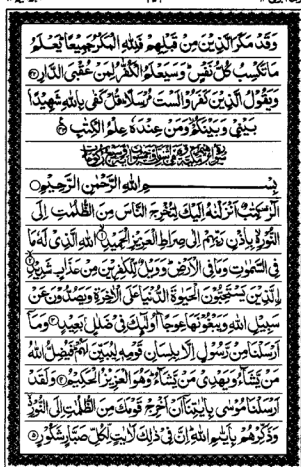 وَقَدْ مَكَرَ الَّذِيْنَ مِنْ قَبْلِهِمْ فَلِلّٰهِ الْمَكْرُ جَمِيْعًا ؕ يَعْلَمُ
مَا تَكْسِبُ كُلُّ نَفْسٍ ؕ وَسَيَعْلَمُ الْكُفّٰرُ لِمَنْ عُقْبَى الدَّارِ ۝۴۲
وَيَقُوْلُ الَّذِيْنَ كَفَرُوْا لَسْتَ مُرْسَلًا ؕ قُلْ كَفٰى بِاللّٰهِ شَهِيْدًا
بَيْنِيْ وَبَيْنَكُمْ ۙ وَمَنْ عِنْدَهٗ عِلْمُ الْكِتٰبِ ۝۴۳
بِسْمِ اللّٰهِ الرَّحْمٰنِ الرَّحِيْمِ
الٓرٰ ۫ كِتٰبٌ اَنْزَلْنٰهُ اِلَيْكَ لِتُخْرِجَ النَّاسَ مِنَ الظُّلُمٰتِ اِلَى
النُّوْرِ ۙ بِاِذْنِ رَبِّهِمْ اِلٰى صِرَاطِ الْعَزِيْزِ الْحَمِيْدِ ۝۱ اللّٰهِ الَّذِيْ لَهٗ مَا
فِي السَّمٰوٰتِ وَمَا فِي الْاَرْضِ ؕ وَوَيْلٌ لِّلْكٰفِرِيْنَ مِنْ عَذَابٍ شَدِيْدِ ۝۲
الَّذِيْنَ يَسْتَحِبُّوْنَ الْحَيٰوةَ الدُّنْيَا عَلَى الْاٰخِرَةِ وَيَصُدُّوْنَ عَنْ
سَبِيْلِ اللّٰهِ وَيَبْغُوْنَهَا عِوَجًا ؕ اُولٰٓئِكَ فِيْ ضَلٰلٍۭ بَعِيْدٍ ۝۳ وَمَاۤ
اَرْسَلْنَا مِنْ رَّسُوْلٍ اِلَّا بِلِسَانِ قَوْمِهٖ لِيُبَيِّنَ لَهُمْ ؕ فَيُضِلُّ اللّٰهُ
مَنْ يَّشَآءُ وَيَهْدِيْ مَنْ يَّشَآءُ ؕ وَهُوَ الْعَزِيْزُ الْحَكِيْمُ ۝۴ وَلَقَدْ
اَرْسَلْنَا مُوْسٰى بِاٰيٰتِنَاۤ اَنْ اَخْرِجْ قَوْمَكَ مِنَ الظُّلُمٰتِ اِلَى النُّوْرِ ۙ
وَذَكِّرْهُمْ بِاَيّٰىمِ اللّٰهِ ؕ اِنَّ فِيْ ذٰلِكَ لَاٰيٰتٍ لِّكُلِّ صَبَّارٍ شَكُوْرٍ ۝۵